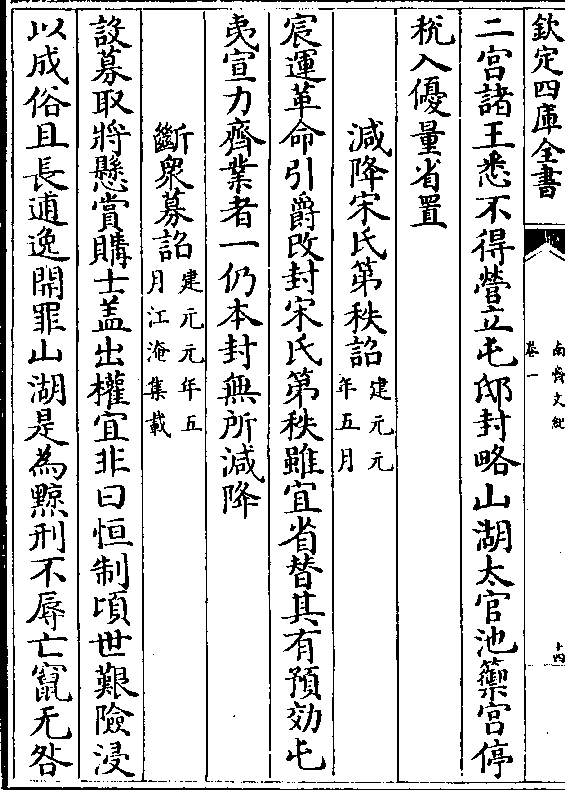 欽定四庫全書
南齊文紀
卷一
十四
二宮諸王悉不得營立屯邸封略山湖太官池籞宮停
稅入優量省置
減降宋氏第秩詔建元元
年五月
宸運革命引爵改封宋氏第秩雖宜省替其有預効屯
夷宣力齊業者一仍本封無所減降
斷衆募詔建元元年五
月江淹集載
設募取將懸賞購士盖出權宜非曰恒制頃世艱險浸
以成俗且長逋逸開罪山湖是為黥刑不辱亡竄无咎